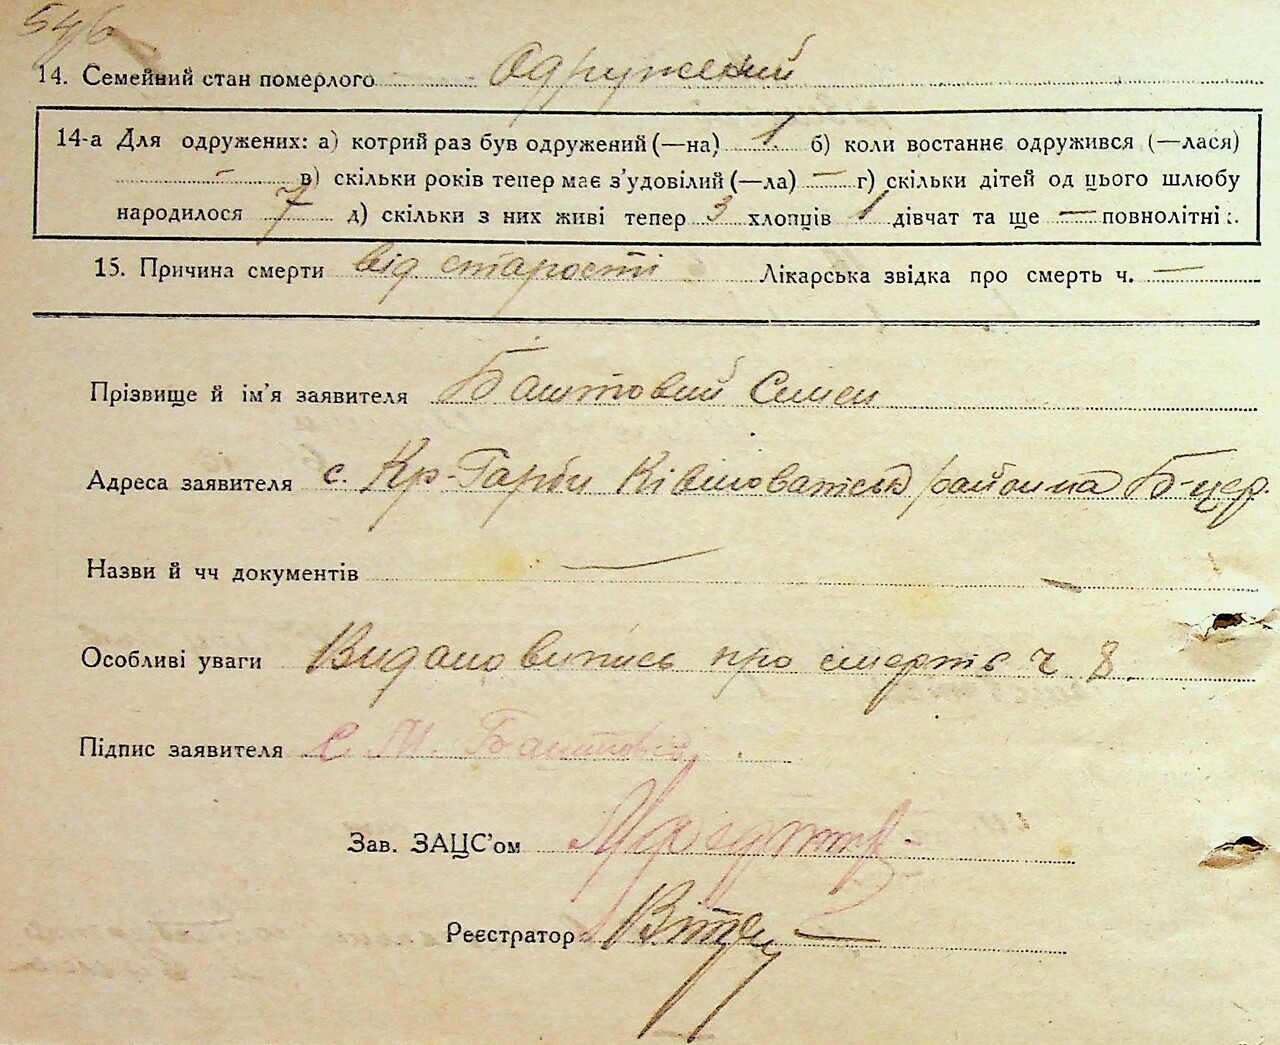 546
14. Семейний стан померлого Одружений
14-а Для одружених: а) котрий раз був одружений (—на) 1 б) коли востаннє одружився (—лася)
— в) скільки років тепер має з'удовілий (—ла) — г) скільки дітей од цього шлюбу
народилося 7 д) скільки з них живі тепер 3 хлопців 1 дівчат та ще — повнолітні:.
15. Причина смерти від старости Лікарська звідка про смерть ч. —
Прізвище й ім'я заявителя Баштовий Семен
Адреса заявителя с. Кр-Гарби Ківшоватськ района Б-цер.
Назви й чч документів —
Особливі уваги Видано випись про смерть ч 8.
Підпис заявителя С. М. Баштовий
Зав. ЗАЦС'ом
Реєстратор